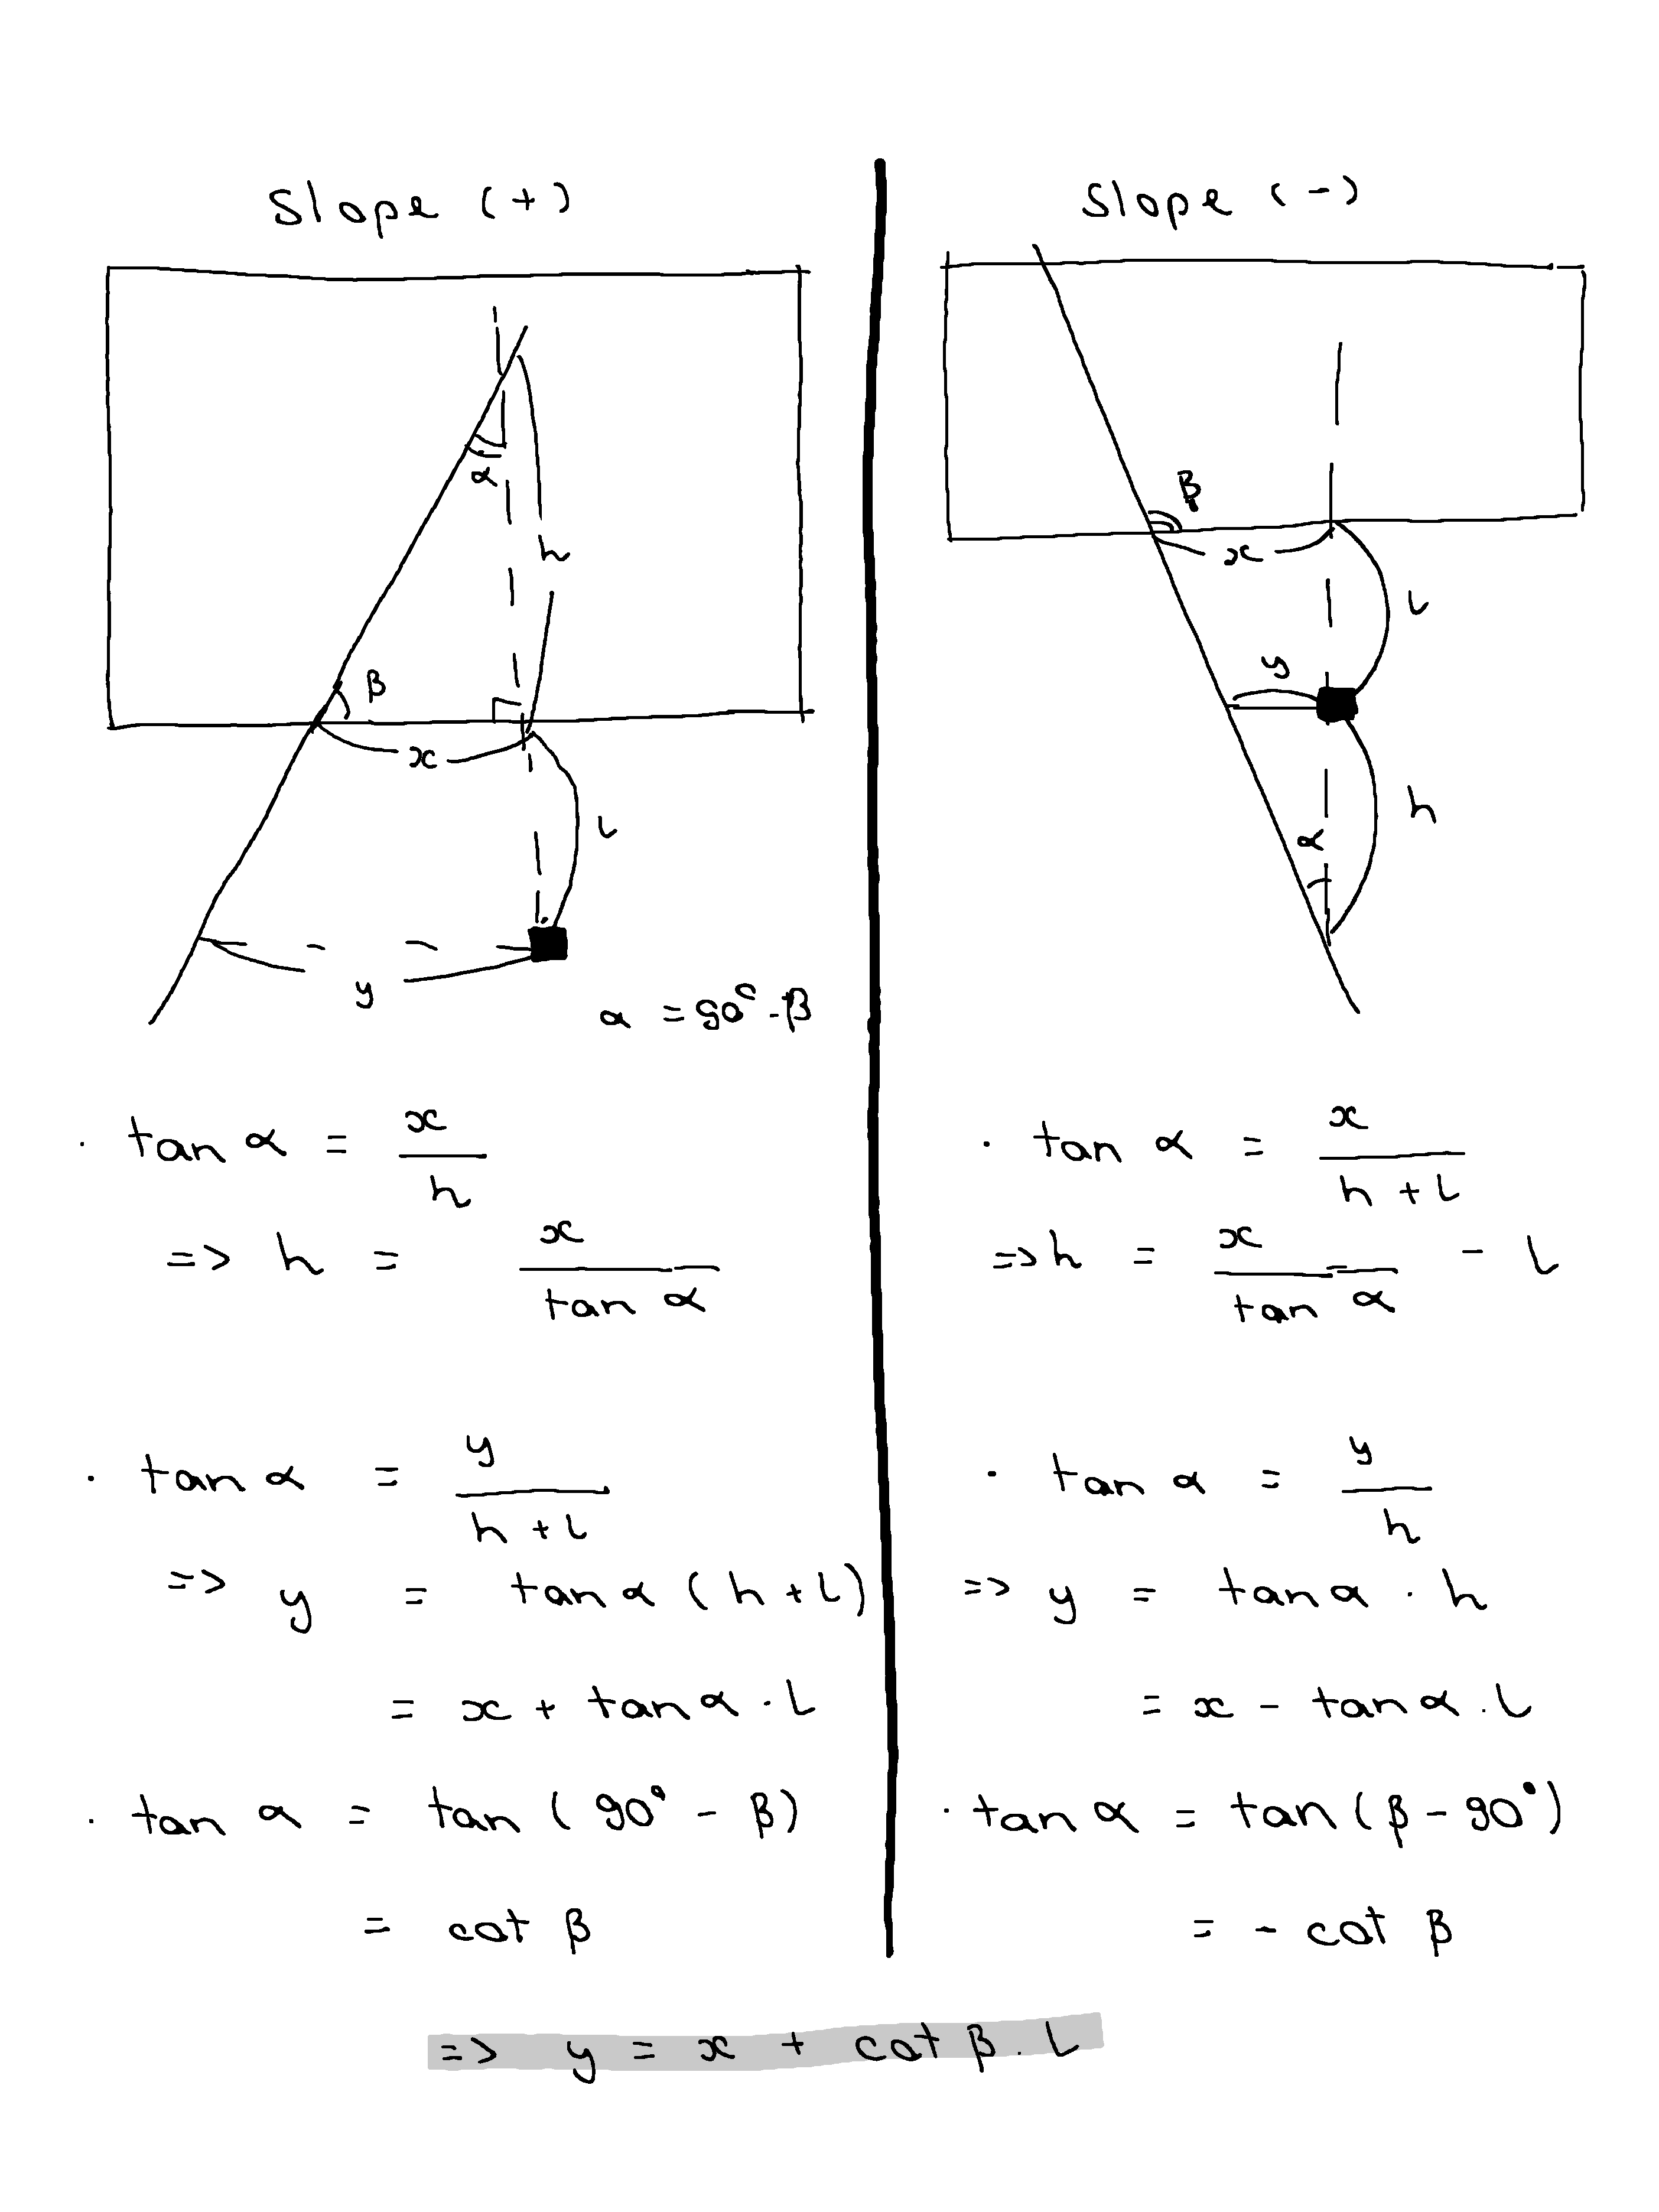 Slope (+)
α
h
β
x
l
y
α = 90° - β
· tan α = x / h
=> h = x / tan α
· tan α = y / h + l
=> y = tan α (h + l)
= x + tan α . l
· tan α = tan ( 90° - β)
= cot β
Slope (-)
β
x
l
y
h
α
· tan α = x / h + l
=> h = x / tan α - l
· tan α = y / h
=> y = tan α . h
= x - tan α . l
· tan α = tan ( β - 90°)
= - cot β
=> y = x + cot β . l